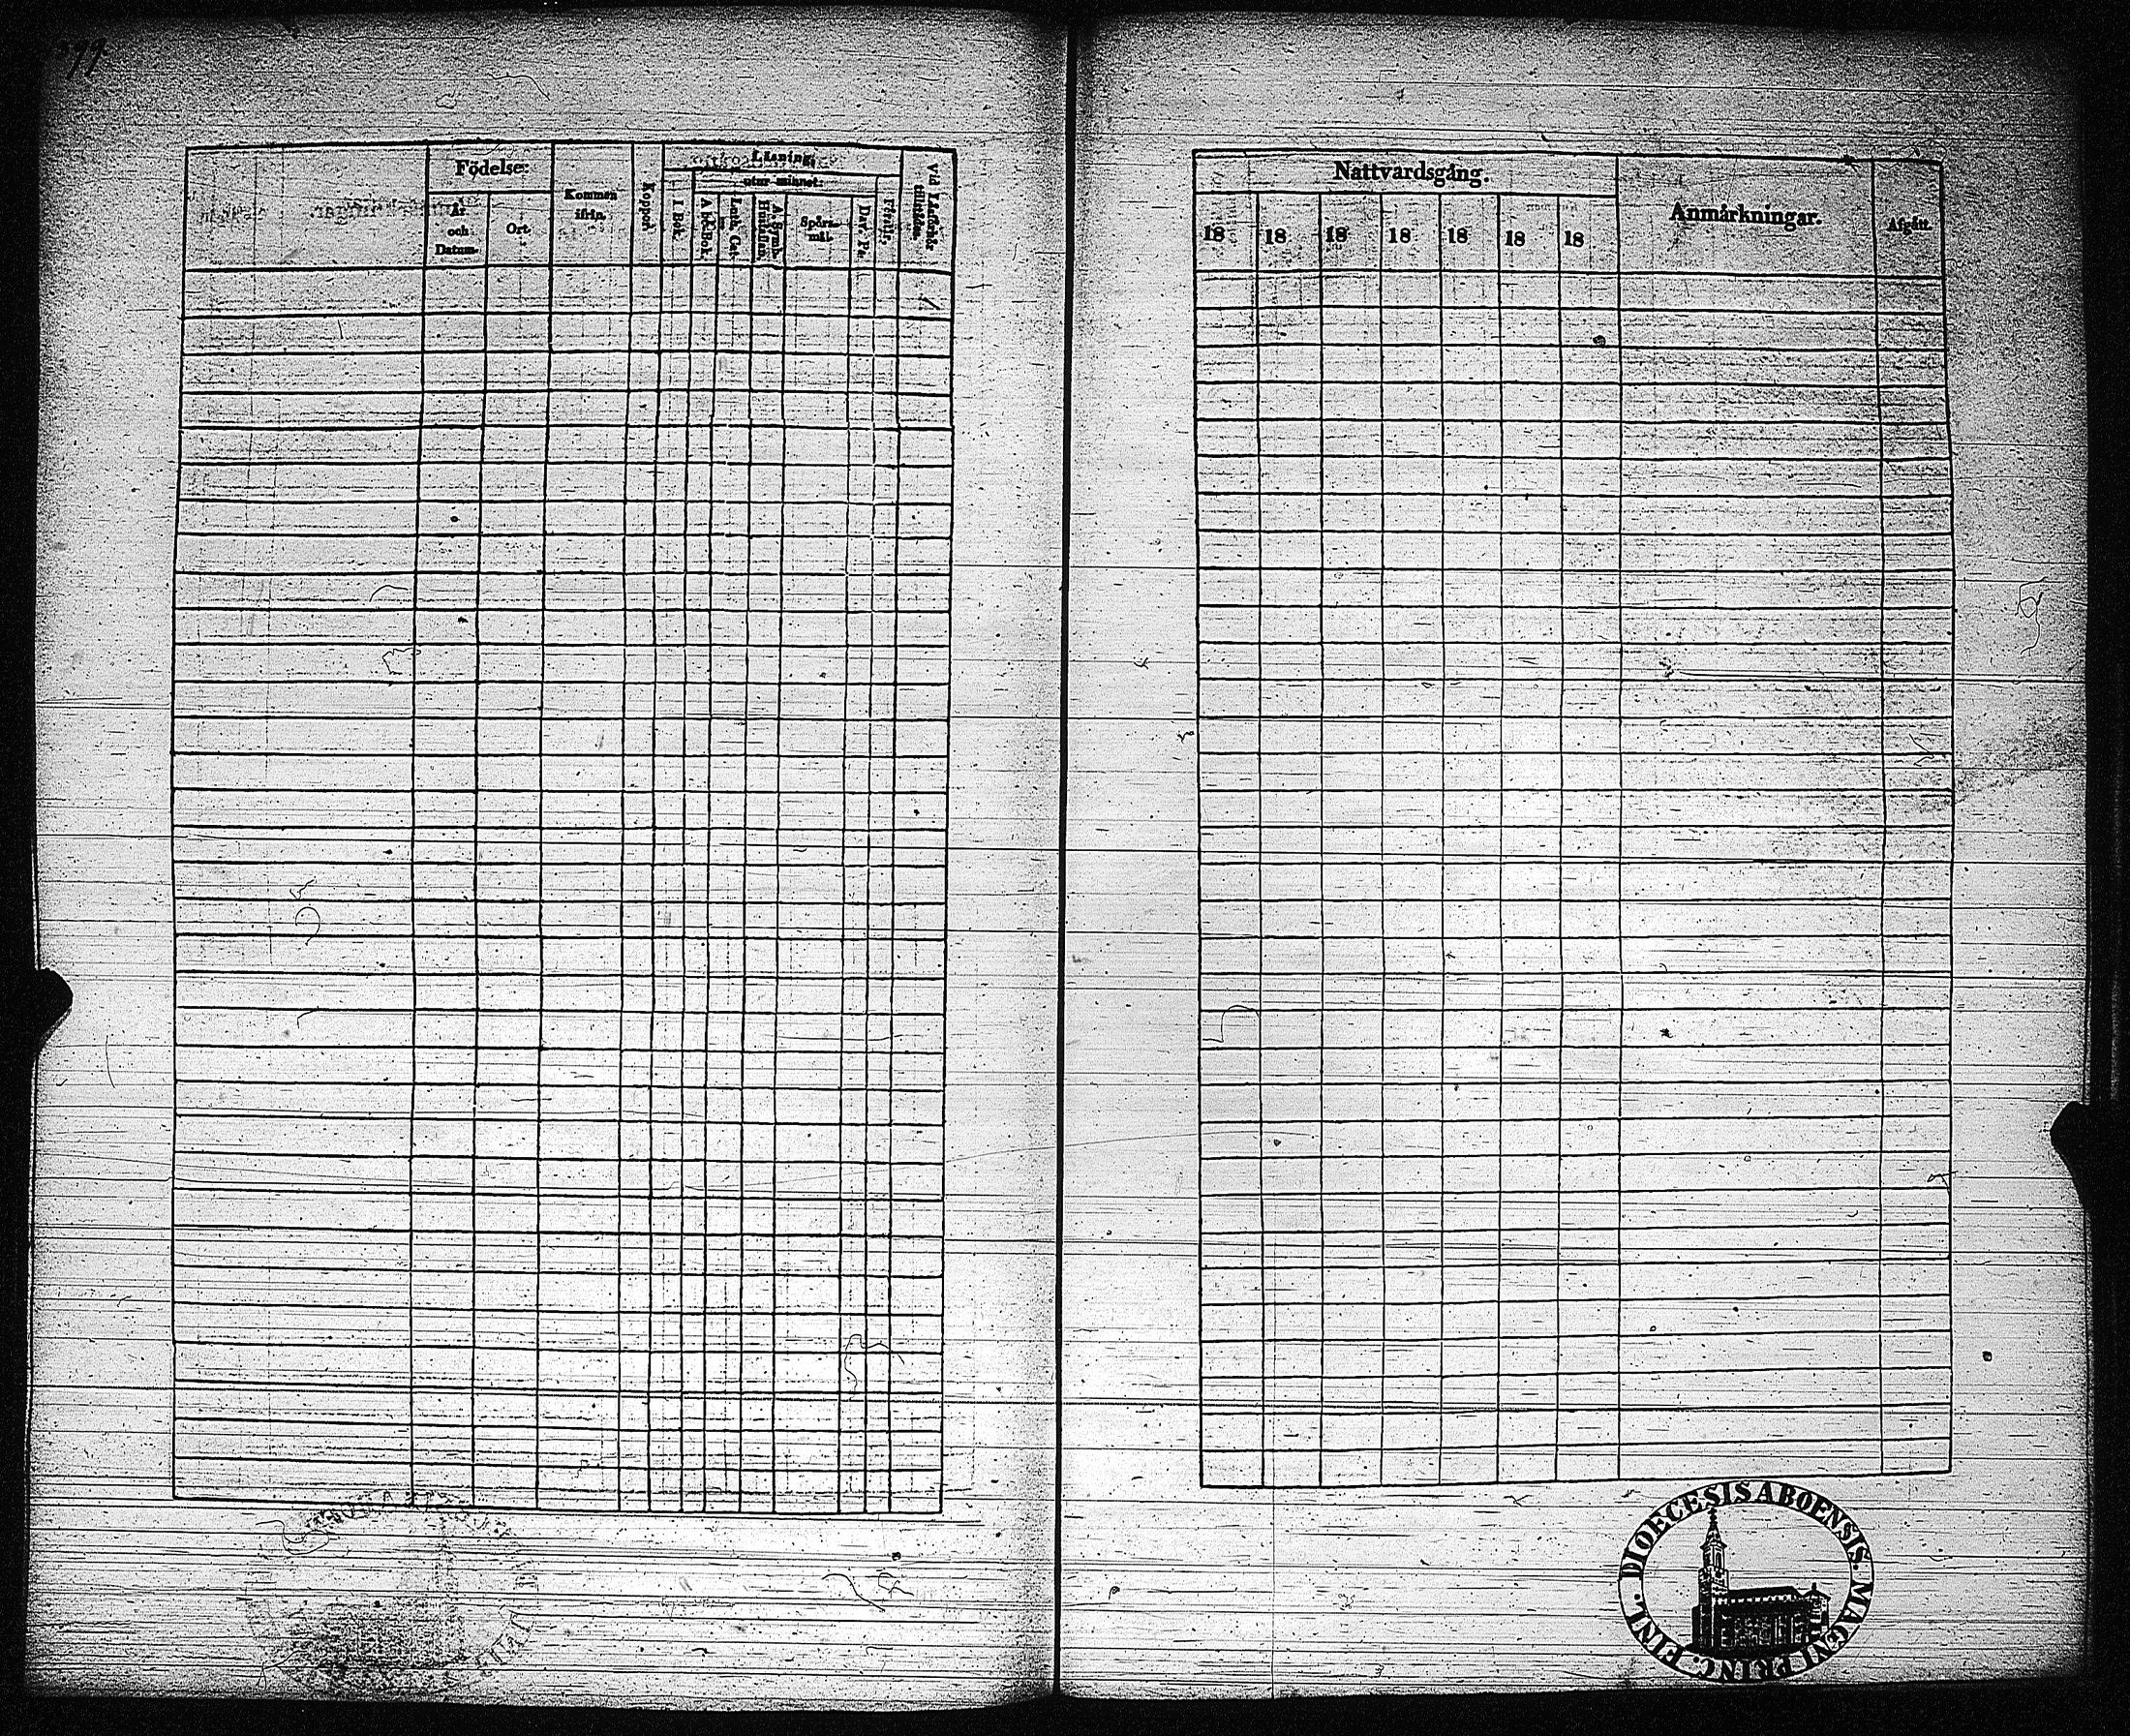 Födelse:
År
och
Datum.
Ort.
Kommen
ifrån.
Koppor.
Läsning;
utur minnet:
I Bok.
A b c Bok.
Luth. Cat.
A. Symb.
Hustaflan.
Spörs-
mål.
Dav. Ps.
Först.
Vid Läsförhör
tillstädes.
Nattvardsgång.
18
18
18
18
18
18
18
Anmärkningar.
Afgått.
DIOECESIS ABOENSIS. MAGNI PRINC. FINL.